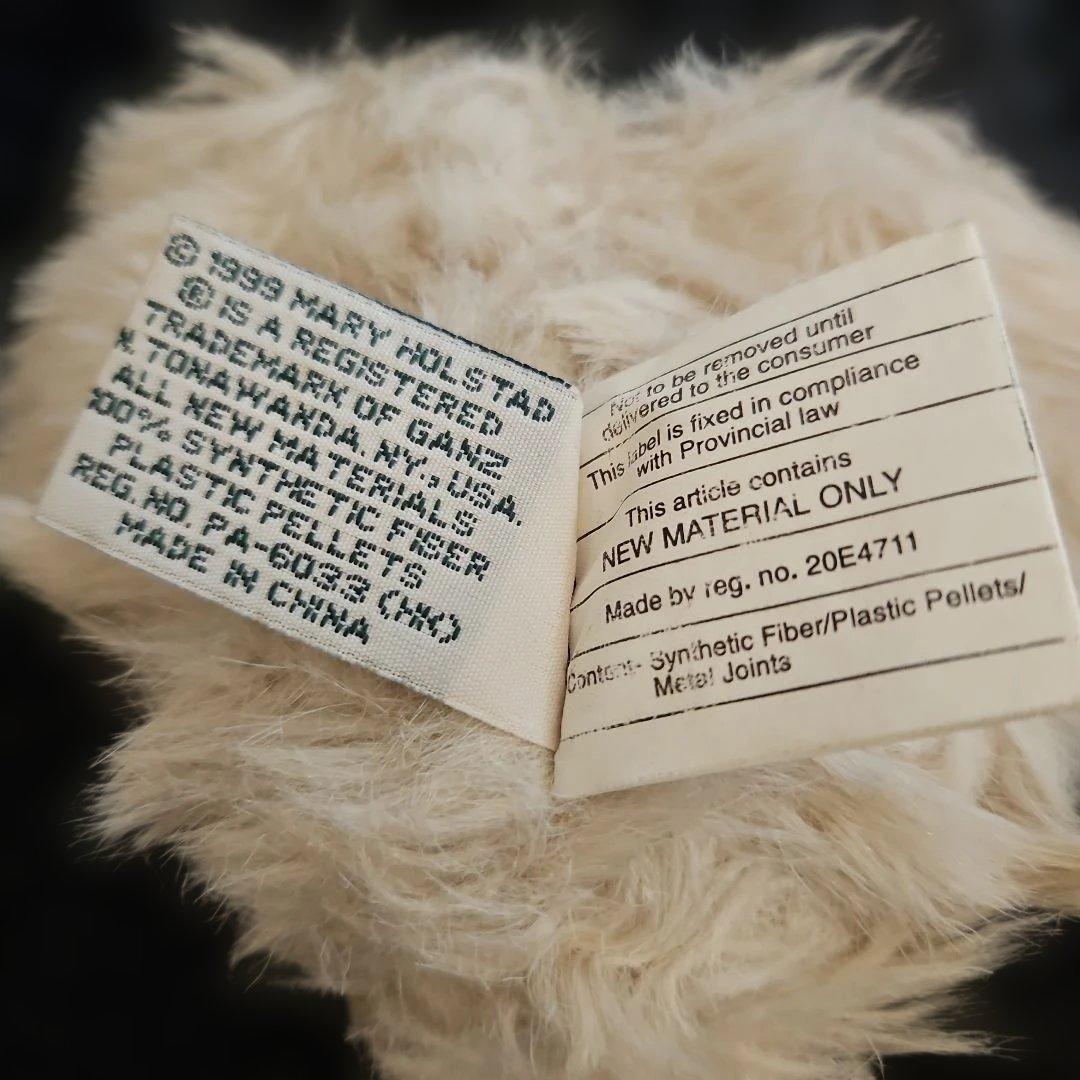 © 1999 MARY HOLSTAD
® IS A REGISTERED
TRADEMARK OF GANZ
N. TONAWANDA, NY., USA.
ALL NEW MATERIALS
100% SYNTHETIC FIBER
PLASTIC PELLETS
REG. NO. PA-6033 (HK)
MADE IN CHINA
Not to be removed until
delivered to the consumer
This label is fixed in compliance
with Provincial law
This article contains
NEW MATERIAL ONLY
Made by reg. no. 20E4711
Content- Synthetic Fiber/Plastic Pellets/
Metal Joints